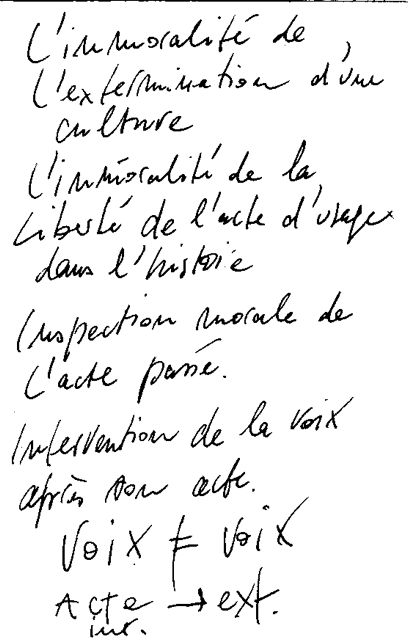 L'immoralité de
l'extermination d'une
culture
L'immoralité de la
liberté de l'acte d'usage
dans l'histoie
Inspection morale de
l'acte passé.
Intervention de la voix
après son acte.
Voix ≠ voix
Acte → ext.
int.